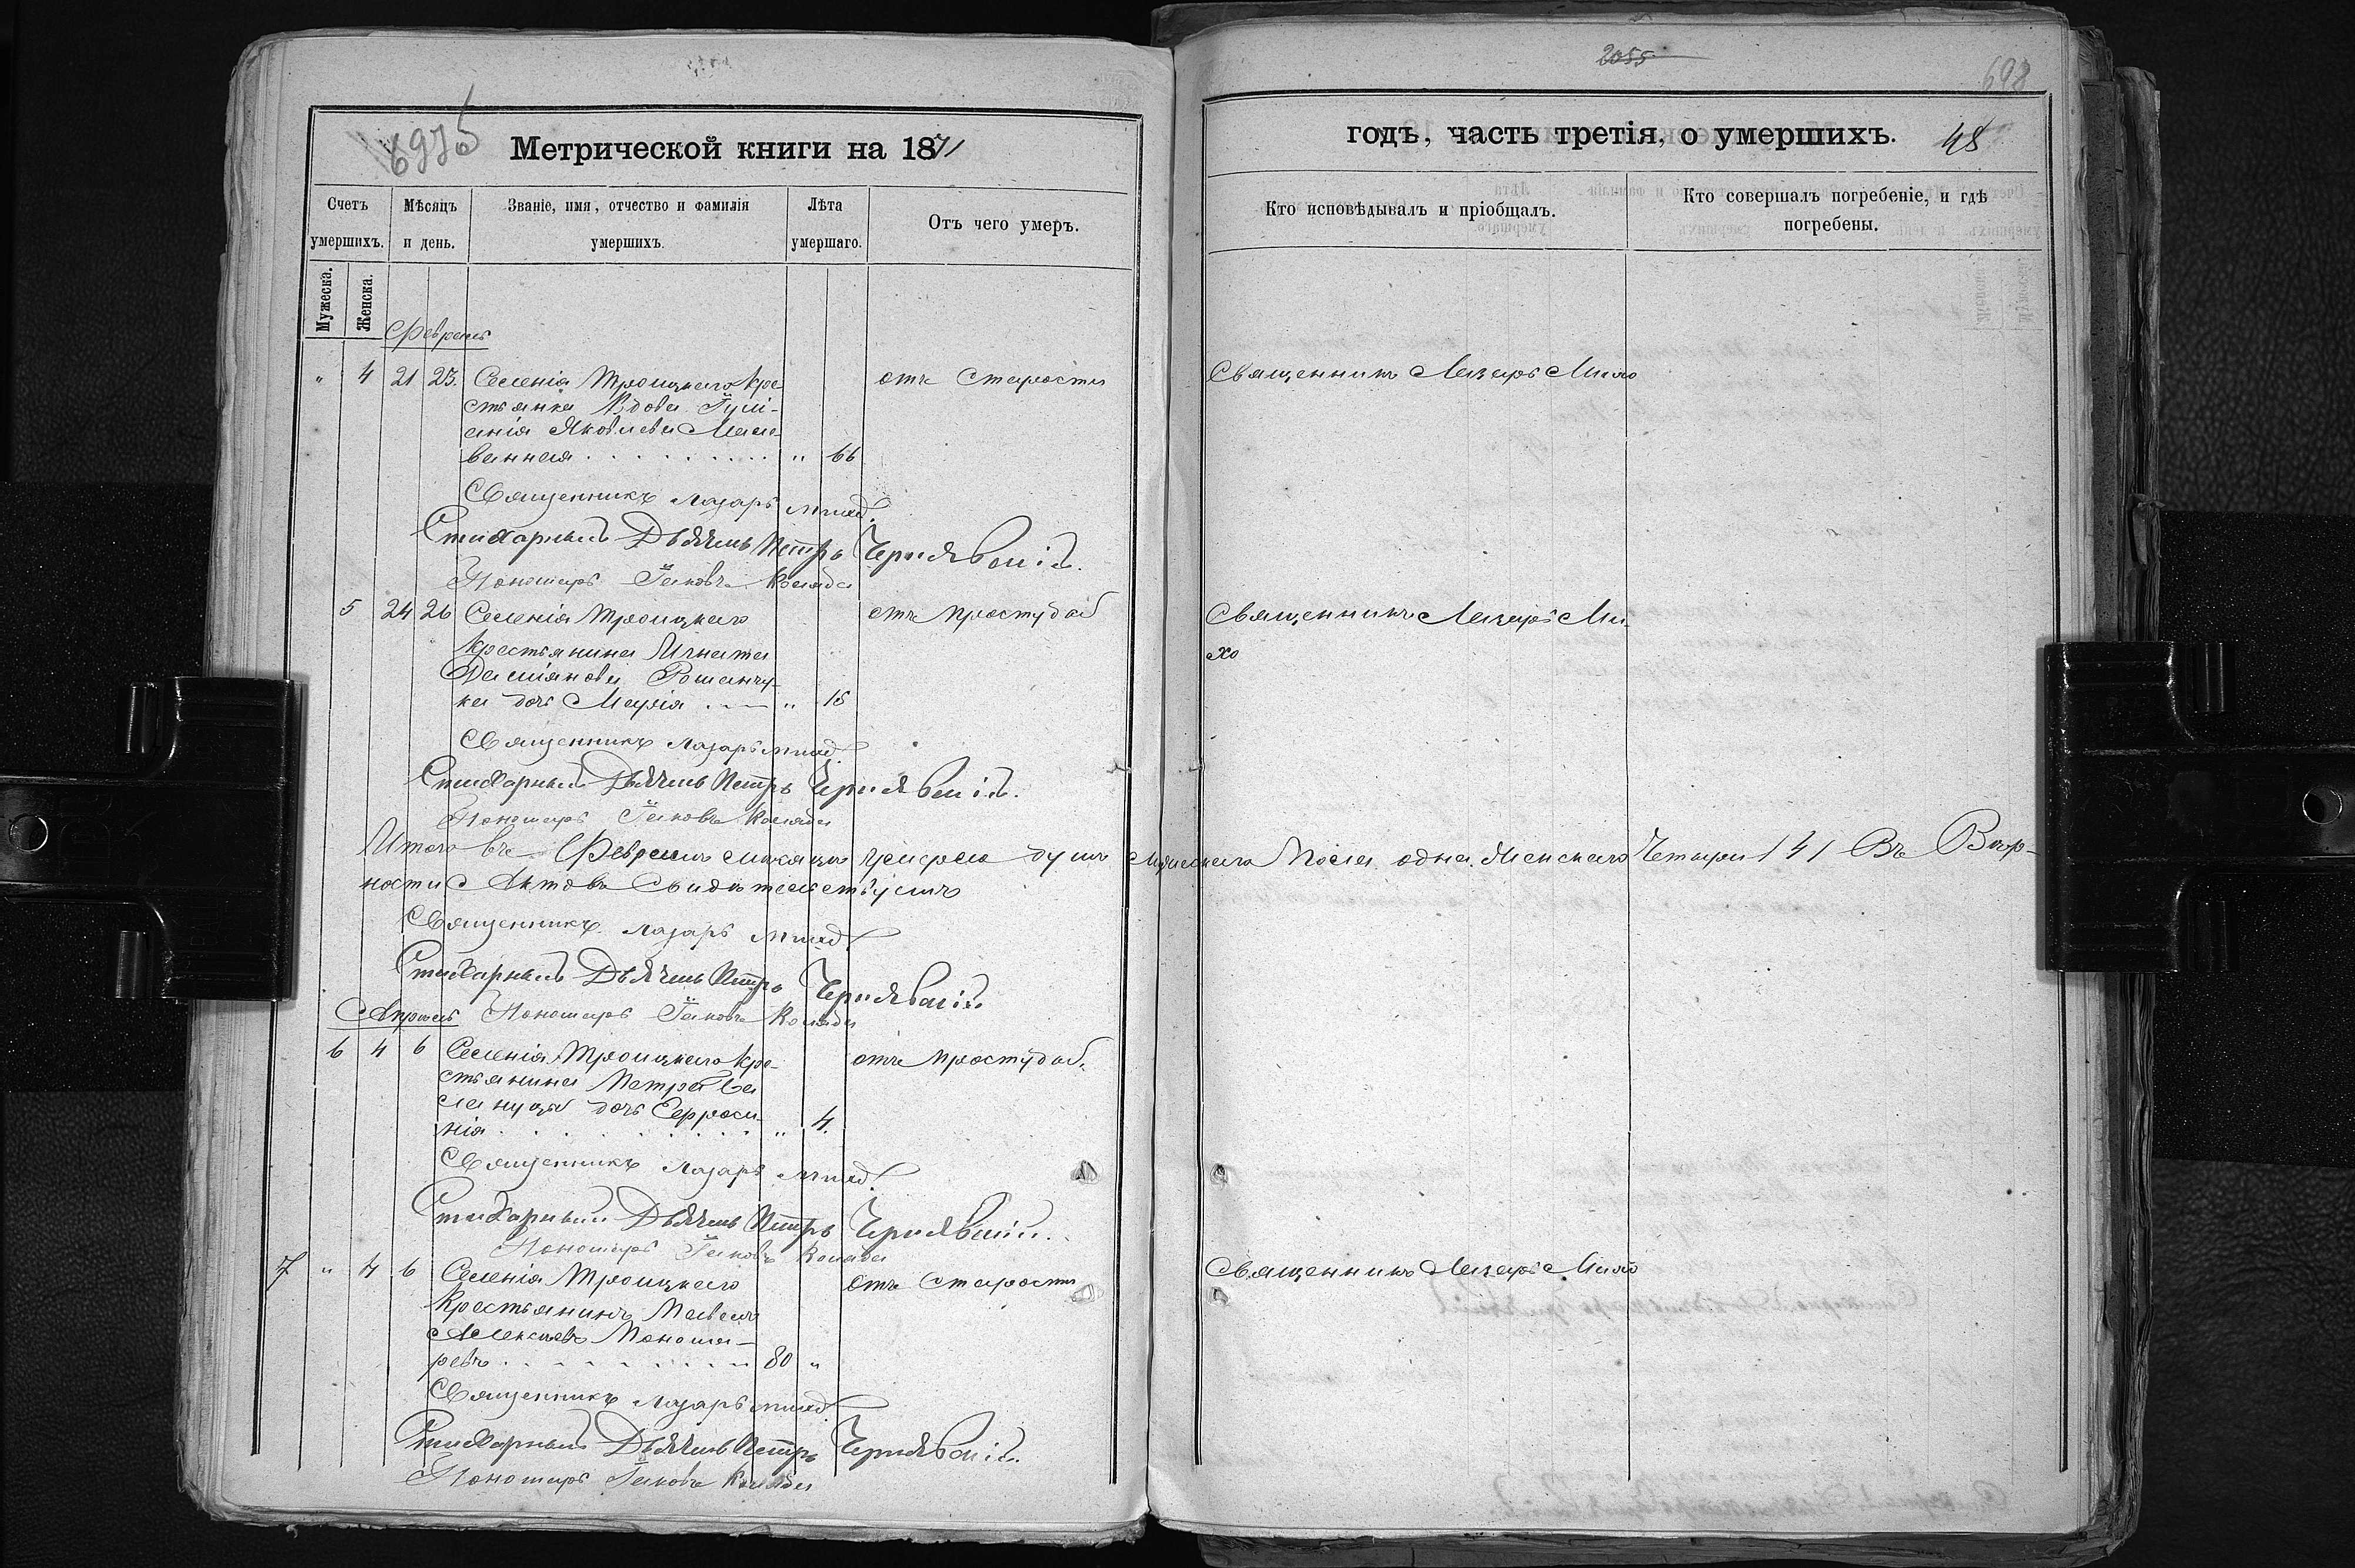 6975
Метрической книги на 1871
Счетъ умершихъ.
Мѣсяцъ и день.
Званіе, имя, отчество и фамилія умершихъ.
Лѣта умершаго.
Отъ чего умеръ.
Мужеска.
Женска.
Февраль
" 4 21 23. Селенія Троицкаго кре- отъ старости
стьянка вдова
Яковлева
ванная " 66
Священникъ Лазарь
Стихарный Дьячекъ Петръ Чернявскій.
Пономарь Іаковъ Коляда
5 24 26 Селенія Троицкаго отъ простуды
крестьянина Игната
Даміянова
ка дочь Марія " 15
Священникъ Лазарь
Стихарный Дьячекъ Петръ Чернявскій.
Пономарь Іаковъ Коляда
Итого въ Февралѣ мѣсяцѣ умерло душъ мужескаго пола одна женскаго четыри 1 4 / Въ Вѣр-
ности Актовъ свидѣтельствуемъ
Священникъ Лазарь
Стихарный Дьячекъ Петръ Чернявскій
Апрель Пономарь Іаковъ Коляда
6 4 6 Селенія Троицкаго кре- отъ простуды.
стьянина Петра
дочь Ефроси-
нія " 4.
Священникъ Лазарь
Стихарный Дьячекъ Петръ Чернявскій.
Пономарь Іаковъ Коляда
7 " 4 6 Селенія Троицкаго отъ старости
крестьянинъ Павелъ
Алексѣевъ Понома-
ревъ 80 "
Священникъ Лазарь
Стихарный Дьячекъ Петръ Чернявскій.
Пономарь Іаковъ Коляда
2055
698
годъ, часть третія, о умершихъ. 48
Кто исповѣдывалъ и пріобщалъ.
Кто совершалъ погребеніе, и гдѣ погребены.
Священникъ Лазарь Михо
Священникъ Лазарь Ми-
хо
Священникъ Лазарь Михо